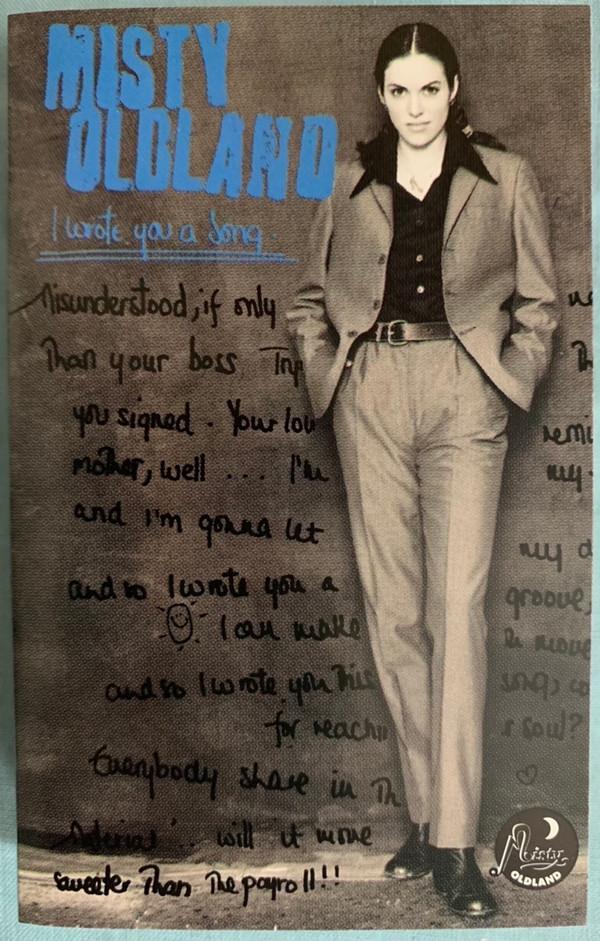 MISTY
OLDLAND
I wrote you a song.
Misunderstood, if only
Than your boss
you signed. Your lov
mother, well ... I'm
my
and I'm gonna let
my d
and so I wrote you a
groove,
I can make
move
and so I wrote you this
song, co
for reachin
r soul?
Everybody share in Th
Material'.. will it move
sweeter Than The payroll!!
Misty
OLDLAND